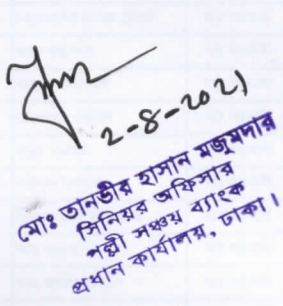 2-8-2021
মোঃ তানভীর হাসান মজুমদার
সিনিয়র অফিসার
পল্লী সঞ্চয় ব্যাংক
প্রধান কার্যালয়, ঢাকা।